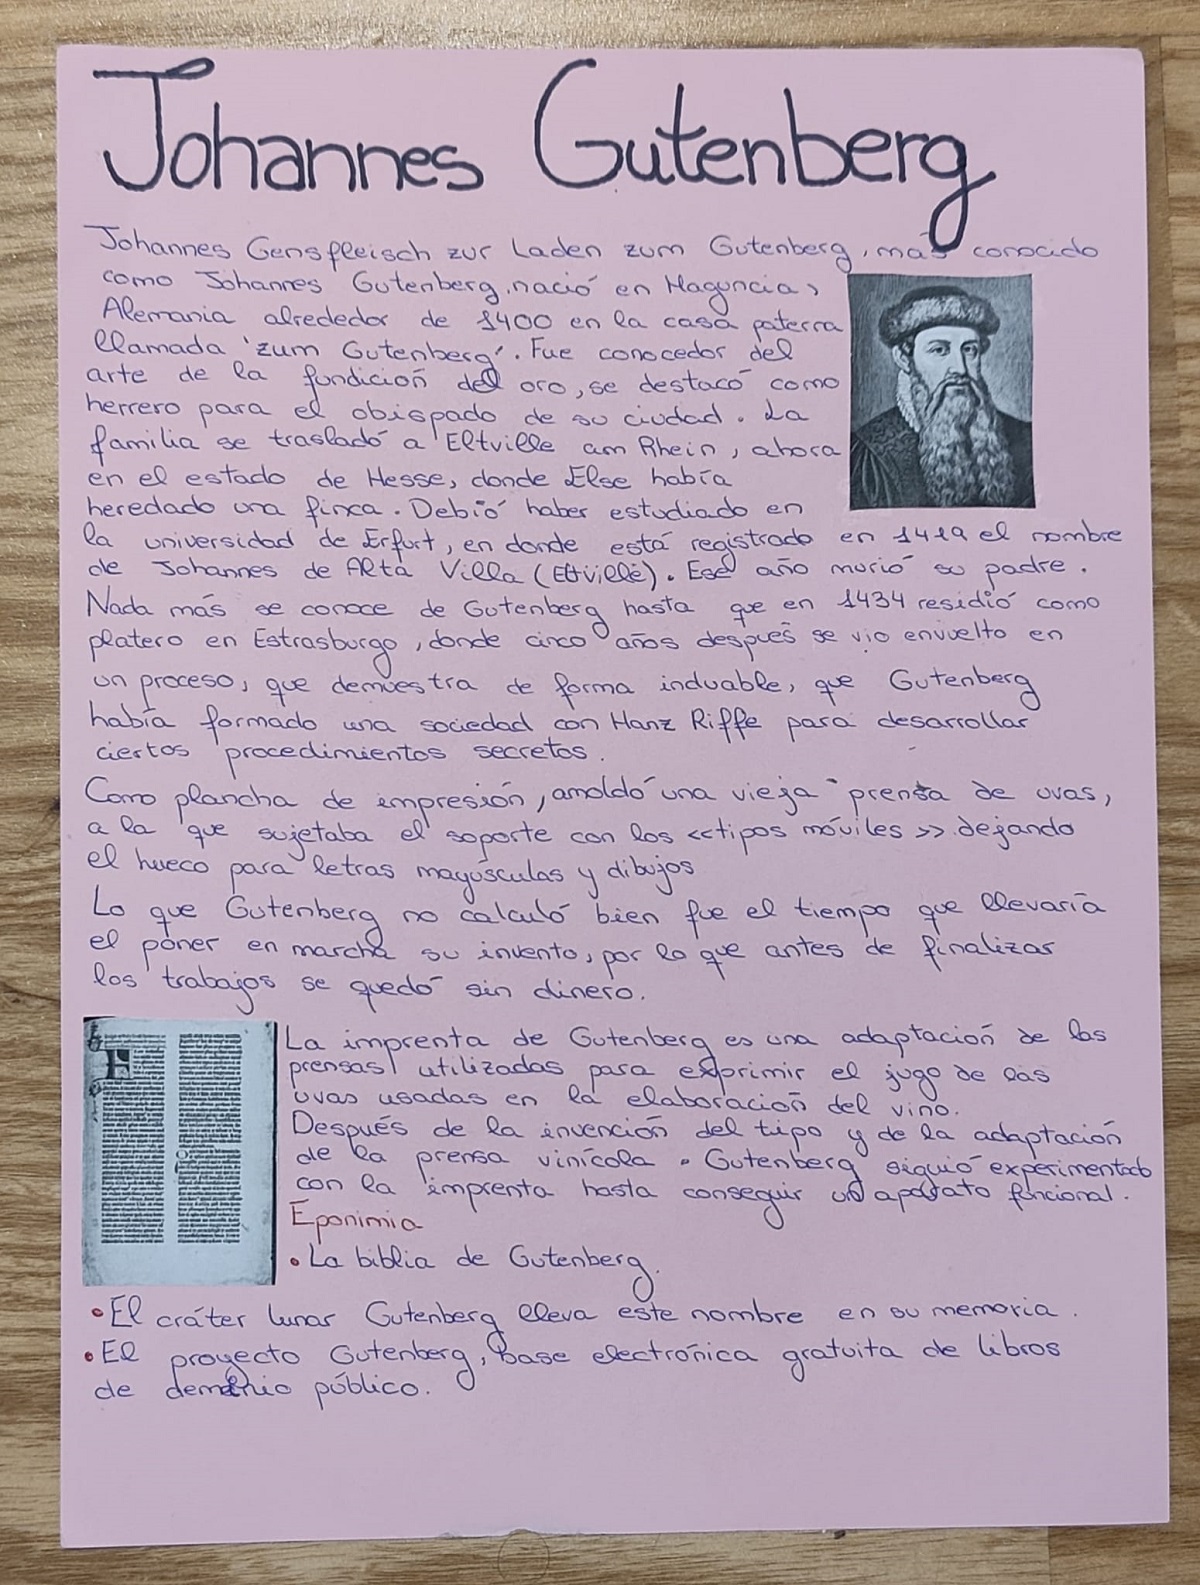 Johannes Gutenberg
Johannes Gensfleisch zur Laden zum Gutenberg, más conocido
como Johannes Gutenberg, nació en Maguncia,
Alemania alrededor de 1400 en la casa paterna
llamada 'zum Gutenberg'. Fue conocedor del
arte de la fundición del oro, se destacó como
herrero para el obispado de su ciudad. La
familia se trasladó a Eltville am Rhein, ahora
en el estado de Hesse, donde Else había
heredado una finca. Debió haber estudiado en
la universidad de Erfurt, en donde está registrado en 1419 el nombre
de Johannes de Alta Villa (Eltville). Ese año murió su padre.
Nada más se conoce de Gutenberg hasta que en 1434 residió como
platero en Estrasburgo, donde cinco años después se vio envuelto en
un proceso, que demuestra de forma induable, que Gutenberg
había formado una sociedad con Hanz Riffe para desarrollar
ciertos procedimientos secretos.
Como plancha de impresión, amoldó una vieja prensa de uvas,
a la que sujetaba el soporte con los <<tipos móviles>> dejando
el hueco para letras mayúsculas y dibujos
Lo que Gutenberg no calculó bien fue el tiempo que llevaría
el poner en marcha su invento, por lo que antes de finalizar
los trabajos se quedó sin dinero.
La imprenta de Gutenberg es una adaptación de las
prensas utilizadas para exprimir el jugo de las
uvas usadas en la elaboración del vino.
Después de la invención del tipo y de la adaptación
de la prensa vinícola. Gutenberg siguió experimentado
con la imprenta hasta conseguir un aparato funcional.
Eponimia
• La biblia de Gutenberg.
• El cráter lunar Gutenberg lleva este nombre en su memoria.
• El proyecto Gutenberg, base electrónica gratuita de libros
de público.